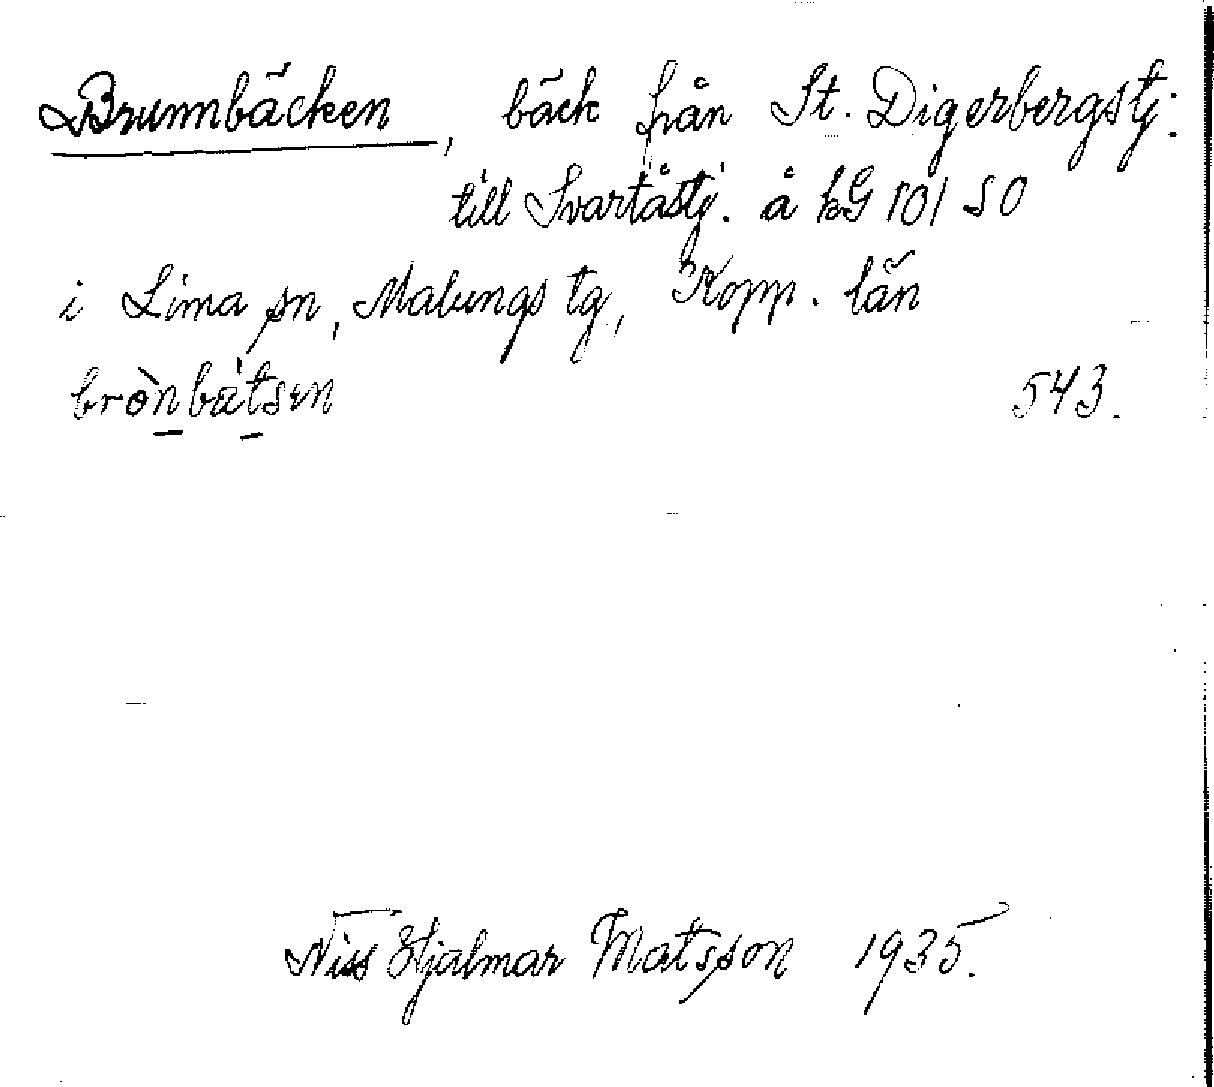 Brunnbäcken, bäck från St. Digerbergstj:
till Svartåstj. å kG 101 SO
i Lima sn, Malungs tg, Kopp. län
brònbǽtsen 543.
Niss Hjalmar Matsson 1935.